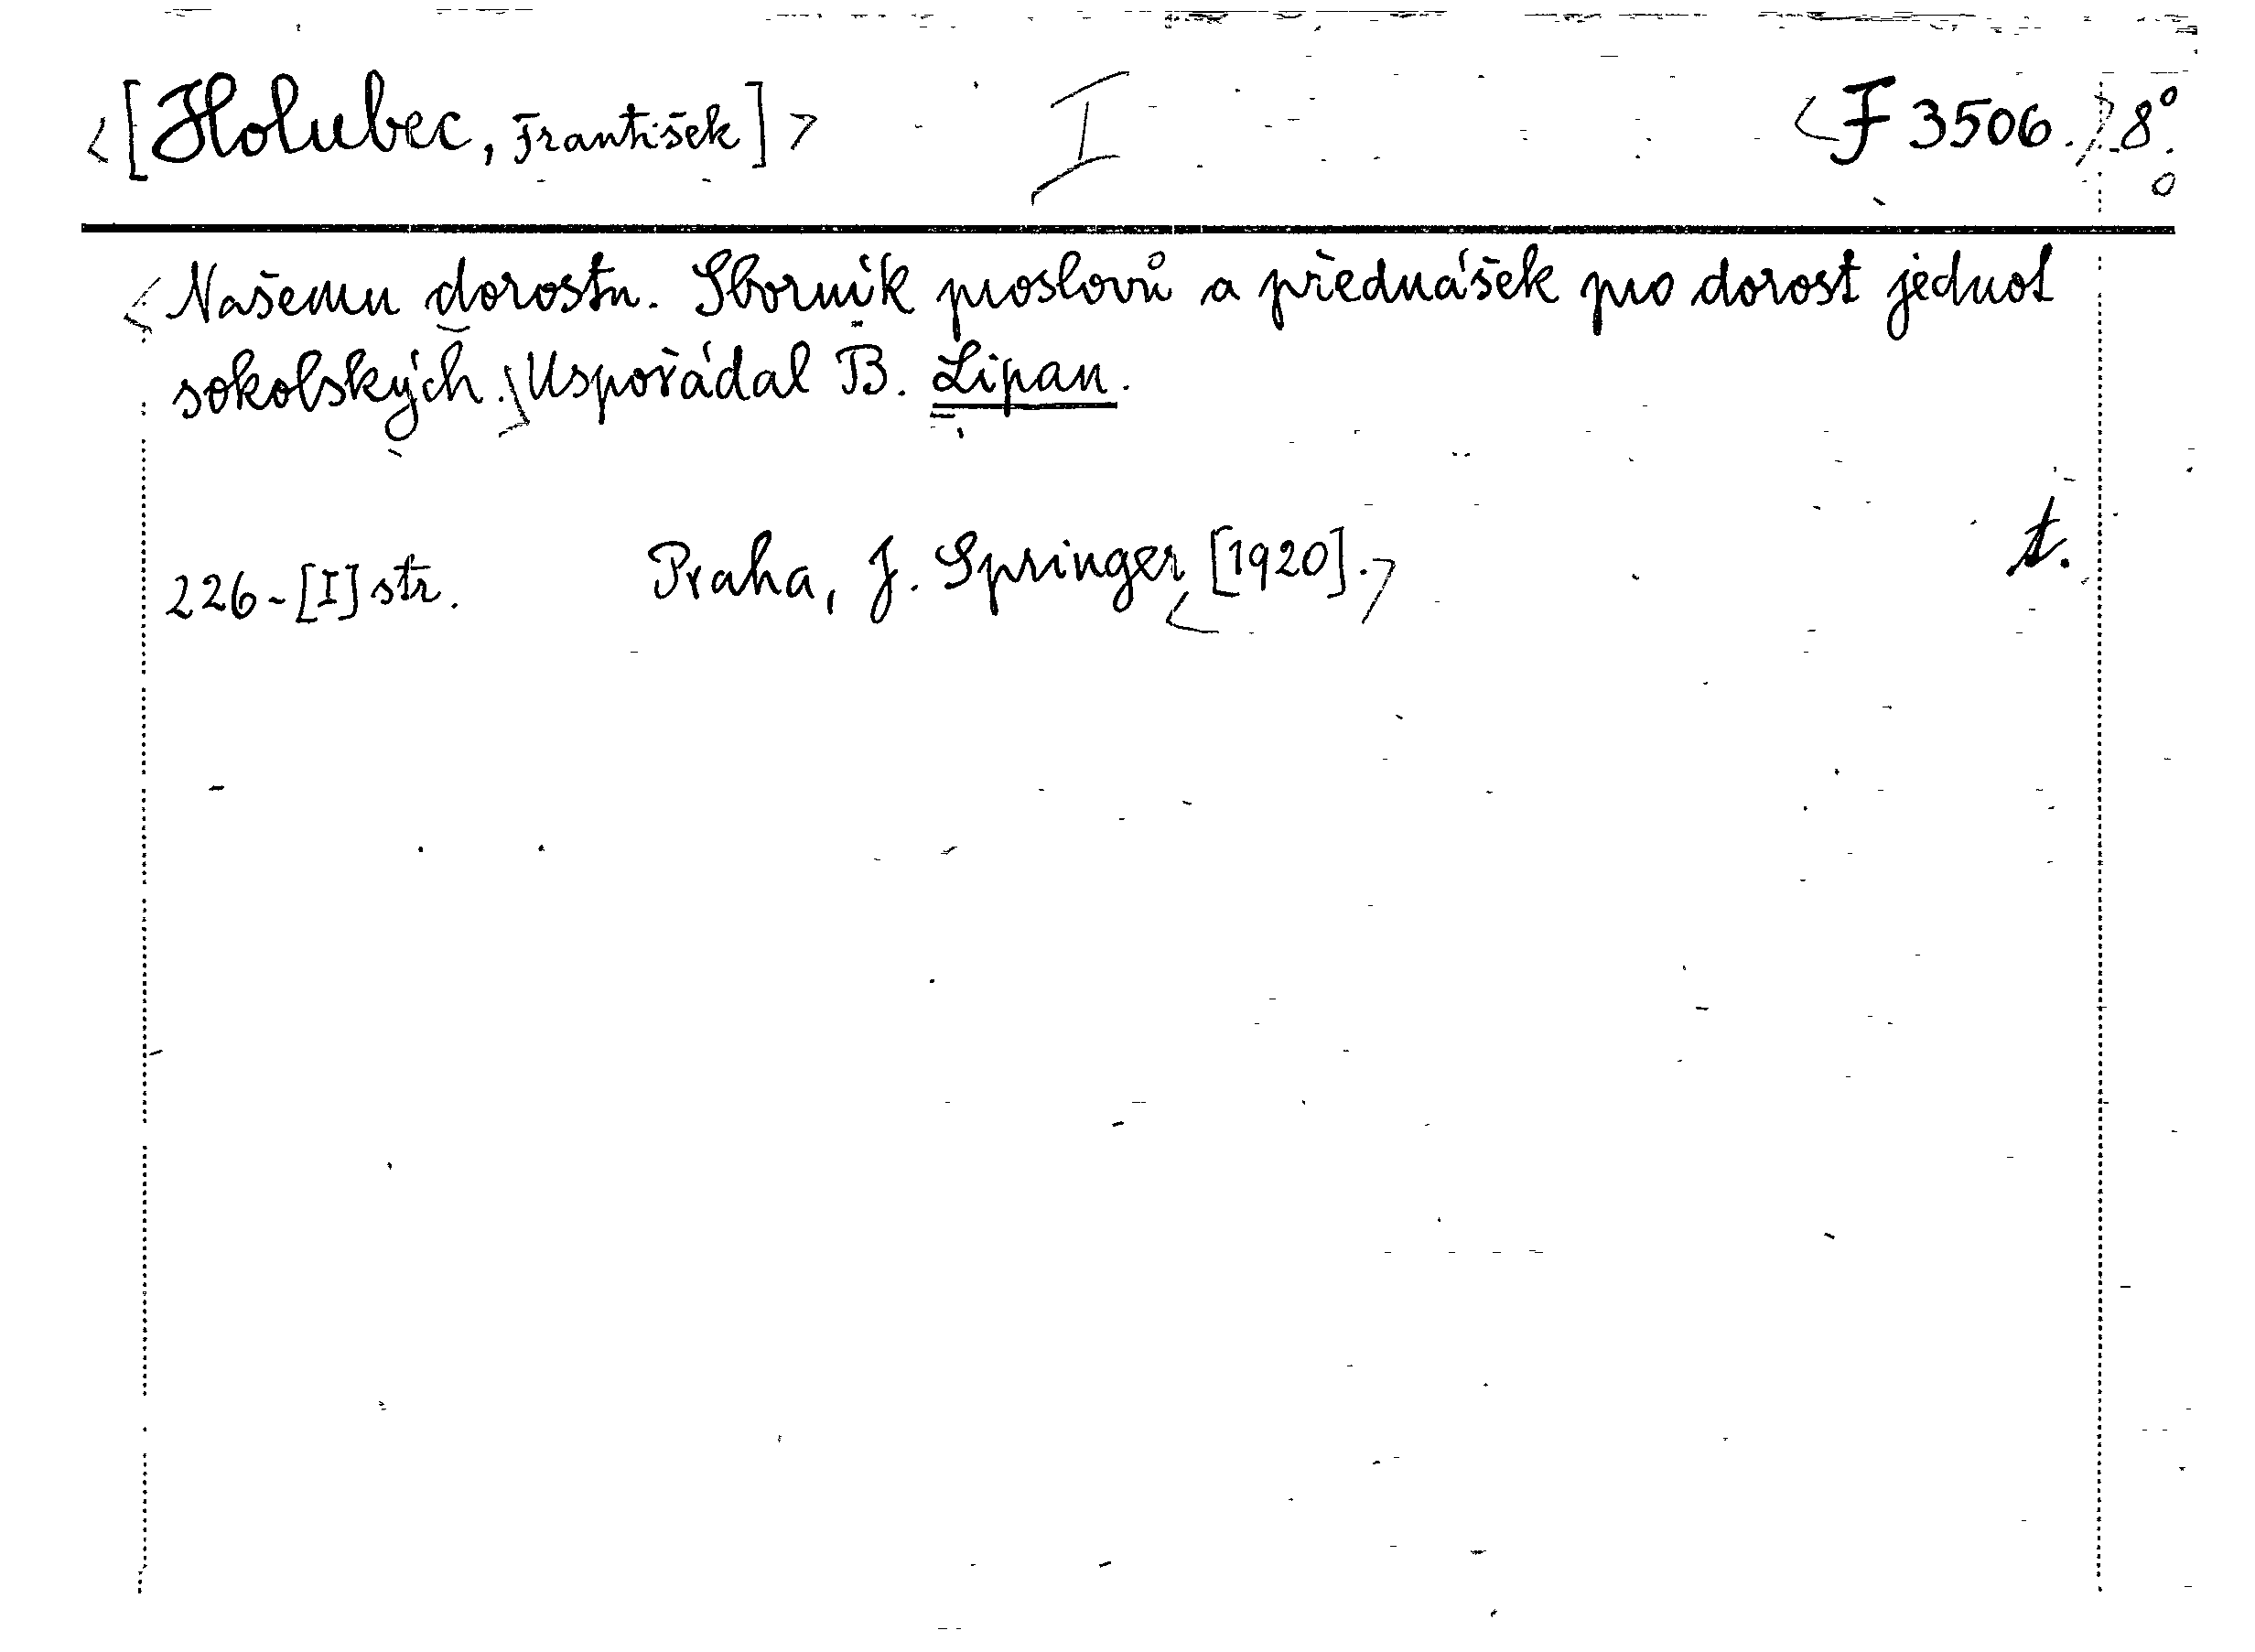 <[Holubec, František]> I <F 3506.> 8°.
<Našemu dorostu. Sborník proslovů a přednášek pro dorost jednot
sokolských.> Uspořádal B. Lipan.
t.
226-[I] str. Praha, J. Springer <[1920].>